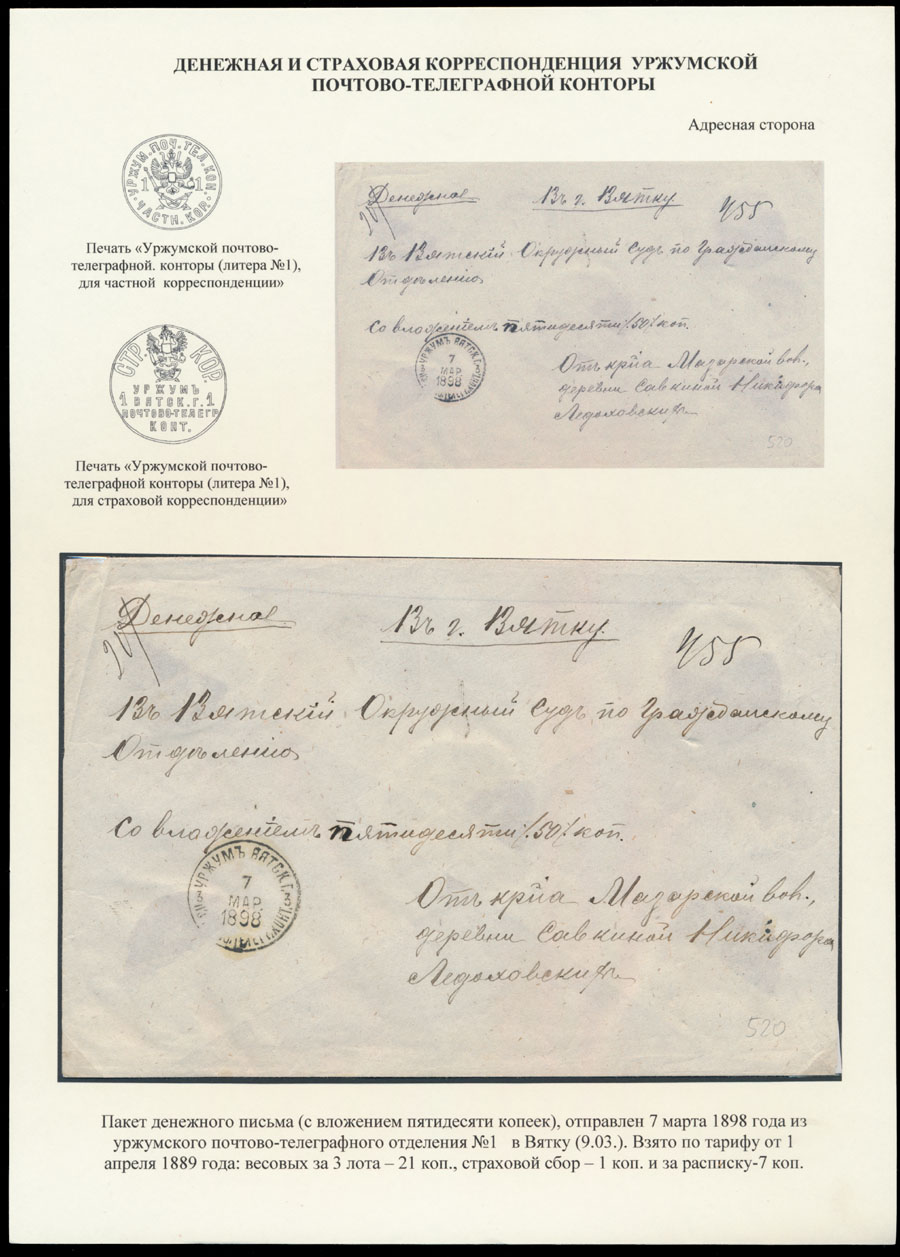 ДЕНЕЖНАЯ И СТРАХОВАЯ КОРРЕСПОНДЕНЦИЯ УРЖУМСКОЙ
ПОЧТОВО-ТЕЛЕГРАФНОЙ КОНТОРЫ
Адресная сторона
УРЖУМ. ПОЧ. ТЕЛ. КОН.
1 1
ЧАСТН. КОР.
Печать «Уржумской почтово-
телеграфной. конторы (литера №1),
для частной корреспонденции»
СТР. КОР.
УРЖУМЪ
1 ВЯТСК. Г. 1
ПОЧТОВО-ТЕЛЕГР
КОНТ.
Печать «Уржумской почтово-
телеграфной конторы (литера №1),
для страховой корреспонденции»
Денежная
Въ г. Вятку
455
Въ Вятскій Окружный Судъ по Гражданскому
Отдѣленію
Со вложеніемъ пятидесяти /50/ коп.
УРЖУМЪ ВЯТСК. Г.
7
МАР.
1898
Отъ кр\іна Мазарской вол.,
деревни Савкиной Никифора
Ледоховскихъ
520
Денежная
Въ г. Вятку.
455
Въ Вятскій Окружный Судъ по Гражданскому
Отдѣленію
Со вложеніемъ пятидесяти /50/ коп.
УРЖУМЪ ВЯТСК. Г.
7
МАР.
1898
Отъ Мазарской вол.,
деревни Савкиной Никифора
Ледоховскихъ
520
Пакет денежного письма (с вложением пятидесяти копеек), отправлен 7 марта 1898 года из
уржумского почтово-телеграфного отделения №1 в Вятку (9.03.). Взято по тарифу от 1
апреля 1889 года: весовых за 3 лота – 21 коп., страховой сбор – 1 коп. и за расписку-7 коп.